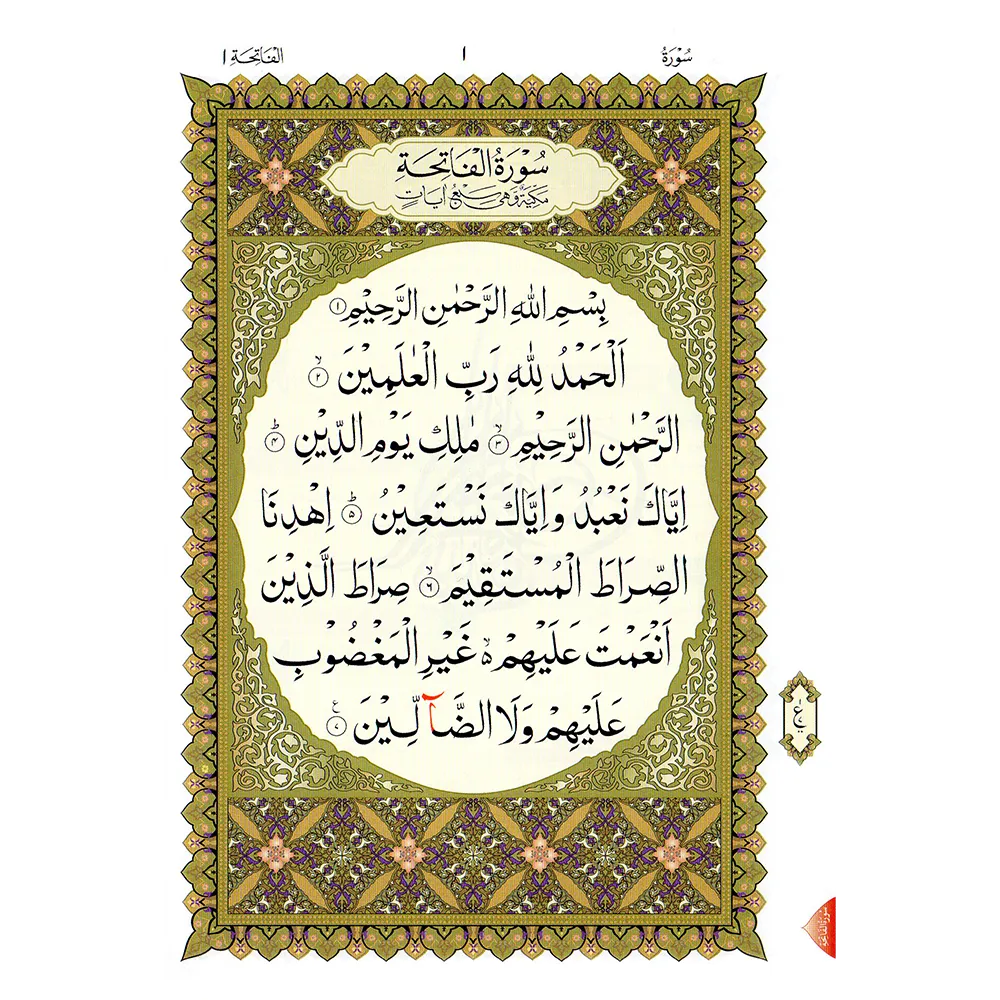 سُوْرَةُ ١ اَلْفَاتِحَة ١
سُوْرَةُ الْفَاتِحَةِ
مَكِّيَّةٌ وَّهِيَ سَبْعُ اٰيَاتٍ
بِسْمِ اللّٰهِ الرَّحْمٰنِ الرَّحِيْمِ ١
اَلْحَمْدُ لِلّٰهِ رَبِّ الْعٰلَمِيْنَ ۙ ٢
الرَّحْمٰنِ الرَّحِيْمِ ۙ ٣ مٰلِكِ يَوْمِ الدِّيْنِ ؕ ۴
اِيَّاكَ نَعْبُدُ وَاِيَّاكَ نَسْتَعِيْنُ ؕ ۵ اِهْدِنَا
الصِّرَاطَ الْمُسْتَقِيْمَ ۙ ۶ صِرَاطَ الَّذِيْنَ
اَنْعَمْتَ عَلَيْهِمْ ۙ۬ غَيْرِ الْمَغْضُوْبِ
عَلَيْهِمْ وَلَا الضَّآلِّيْنَ ۷ ع
ع
سورة الفاتحة